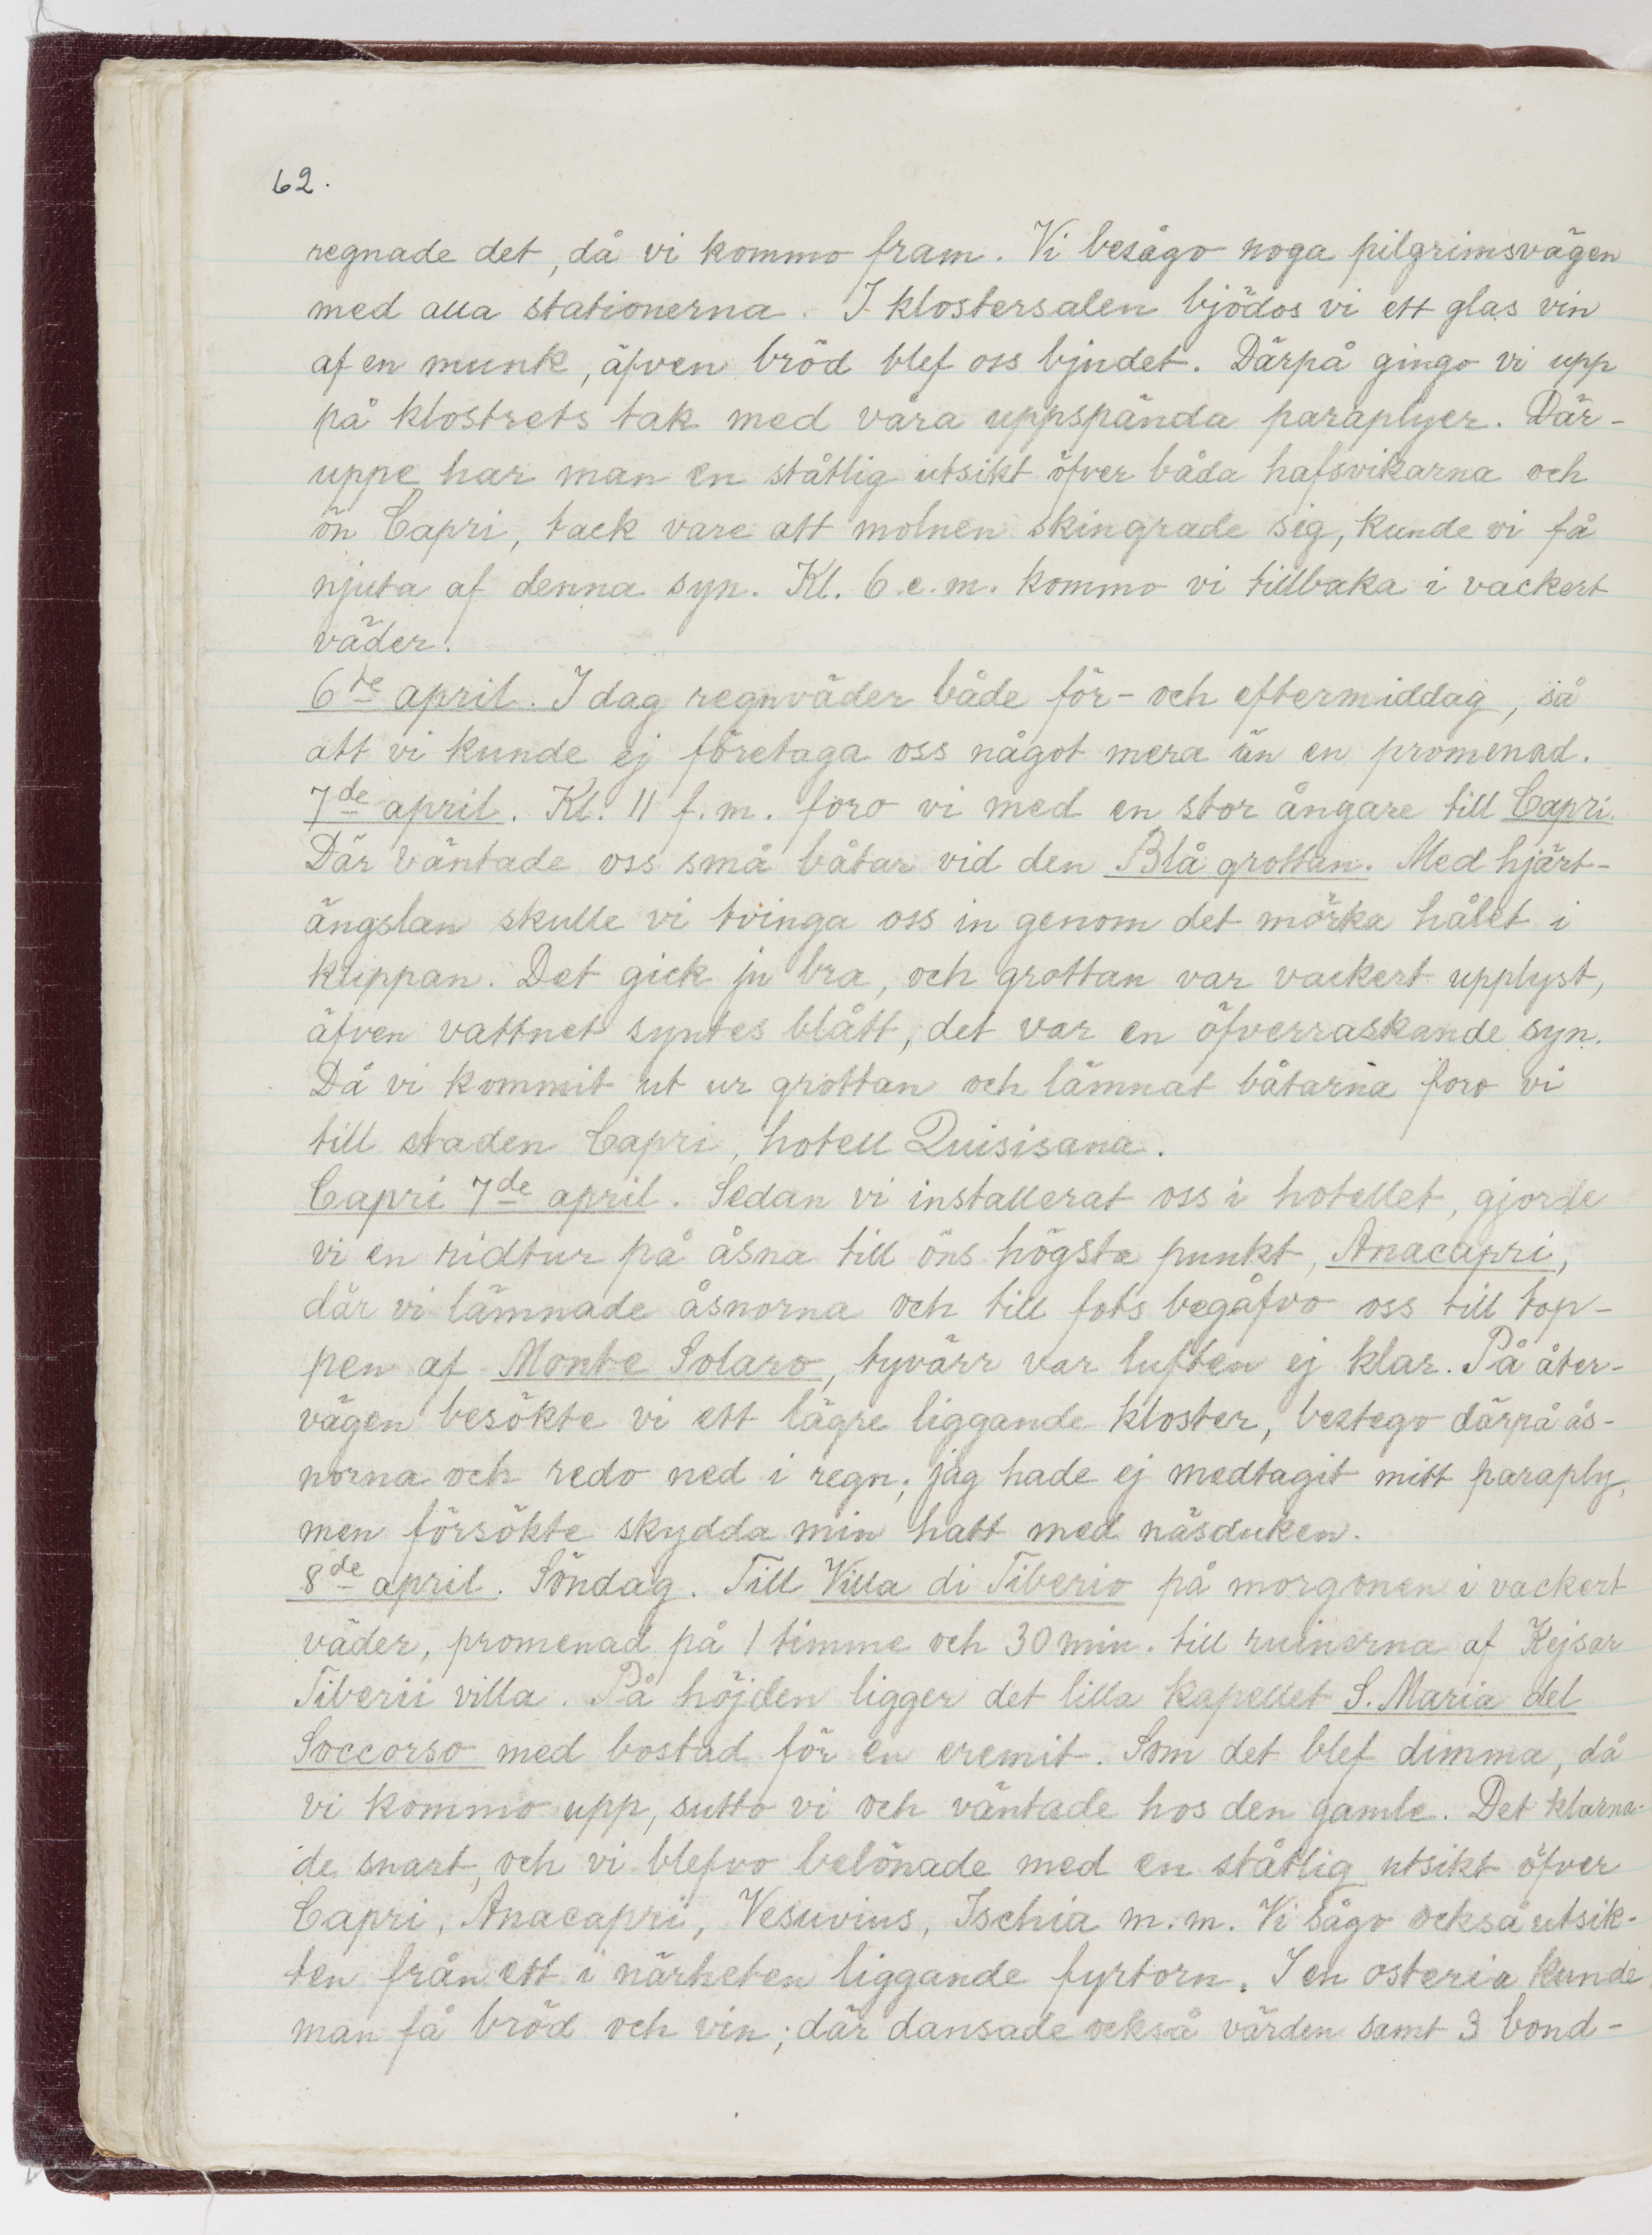 62.
regnade det, då vi kommo fram. Vi besågo noga pilgrimsvägen
med alla stationerna. I klostersalen bjödos vi ett glas vin
af en munk, äfven bröd blef oss bjudet. Därpå gingo vi upp
på klostrets tak med våra uppspända paraplyer. Där-
uppe har man en ståtlig utsikt öfver båda hafsvikarna och
ön Capri, tack vare att molnen skingrade sig, kunde vi få
njuta af denna syn. Kl. 6 e.m. kommo vi tillbaka i vackert
väder.
6te april. I dag regnväder både för- och eftermiddag, så
att vi kunde ej företaga oss något mera än en promenad.
7de april. Kl. 11 f.m. foro vi med en stor ångare till Capri.
Där väntade oss små båtar vid den Blå grottan. Med hjärt-
ängslan skulle vi tvinga oss in genom det mörka hålet i
klippan. Det gick ju bra, och grottan var vackert upplyst,
äfven vattnet syntes blått, det var en öfverraskande syn.
Då vi kommit ut ur grottan och lämnat båtarna foro vi
till staden Capri, hotell Quisisana.
Capri 7de april. Sedan vi installerat oss i hotellet, gjorde
vi en ridtur på åsna till öns högsta punkt, Anacapri,
där vi lämnade åsnorna och till fots begåfvo oss till top-
pen af Monte Solaro, tyvärr var luften ej klar. På åter-
vägen besökte vi ett lägre liggande kloster, bestego därpå ås-
norna och redo ned i regn; jag hade ej medtagit mitt paraply,
men försökte skydda min hatt med näsduken.
8de april. Söndag. Till Villa di Tiberio på morgonen i vackert
väder, promenad på 1 timme och 30 min. till ruinerna af Kejsar
Tiberii villa. På höjden ligger det lilla kapellet S. Maria del
Soccorso med bostad för en eremit. Som det blef dimma, då
vi kommo upp, sutto vi och väntade hos den gamle. Det klarna-
de snart, och vi blefvo belönade med en ståtlig utsikt öfver
Capri, Anacapri, Vesuvius, Ischia m.m. Vi sågo också utsik-
ten från ett i närheten liggande fyrtorn. I en osteria kunde
man få bröd och vin; där dansade också värden samt 3 bond-